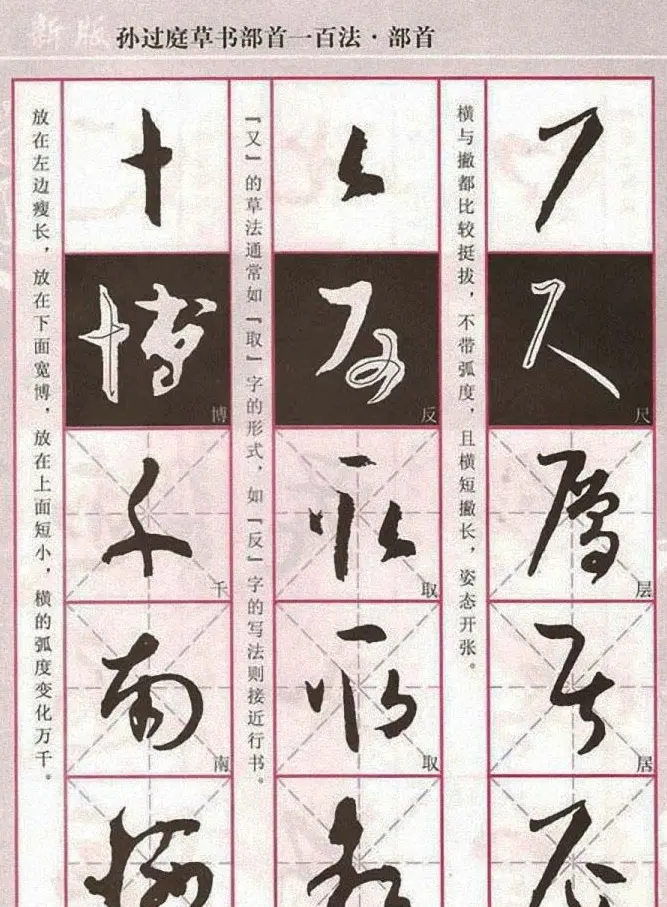 新版 孙过庭草书部首一百法·部首
尺
层
居
横与撇都比较挺拔，不带弧度，且横短撇长，姿态开张。
反
取
取
『又』的草法通常如『取』字的形式，如『反』字的写法则接近行书。
十
博
千
南
放在左边瘦长，放在下面宽博，放在上面短小，横的弧度变化万千。